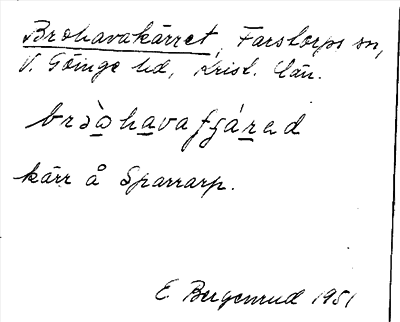 Brohavakärret, Farstorps sn,
V. Göinge hd, Krist. län.
bròɷhavafjárəd
kärr å Sparrarp.
E Bergenrud 1951